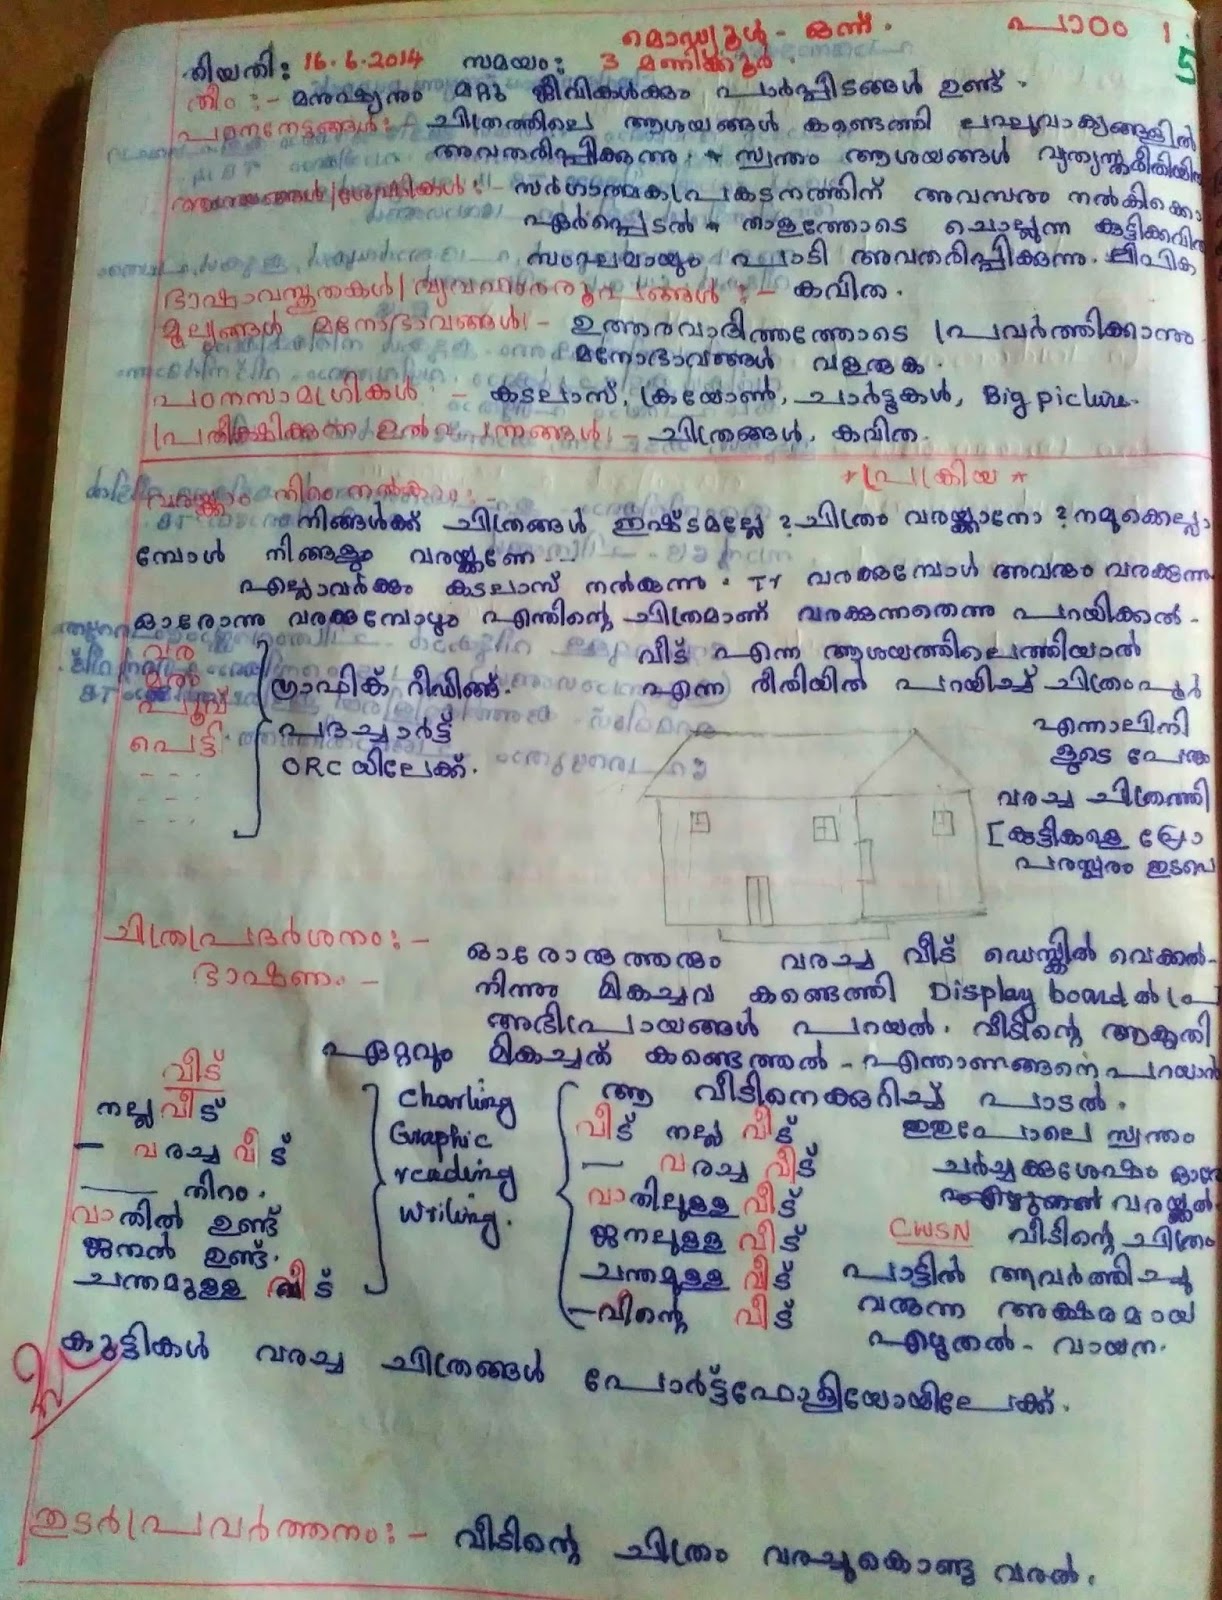 മൊഡ്യൂൾ - ഒന്ന്. പാഠം 1
5
തിയതി: 16.6.2014 സമയം: 3 മണിക്കൂർ.
തീം :- മനുഷ്യനും മറ്റു ജീവികൾക്കും പാർപ്പിടങ്ങൾ ഉണ്ട്.
പഠനനേട്ടങ്ങൾ: ചിത്രത്തിലെ ആശയങ്ങൾ കണ്ടെത്തി ലഘുവാക്യങ്ങളിൽ
അവതരിപ്പിക്കുന്നു. * സ്വന്തം ആശയങ്ങൾ വ്യത്യസ്തരീതിയിൽ
ആശയങ്ങൾ/ശേഷികൾ :- സർഗാത്മകപ്രകടനത്തിന് അവസരം നൽകിക്കൊ
ഏർപ്പെടൽ * താളത്തോടെ ചൊല്ലുന്ന കുട്ടിക്കവിത
സംഘമായും പാടി അവതരിപ്പിക്കുന്നു. ലിപിക
ഭാഷാവസ്തുതകൾ/വ്യവഹാരരൂപങ്ങൾ :- കവിത.
മൂല്യങ്ങൾ മനോഭാവങ്ങൾ:- ഉത്തരവാദിത്തത്തോടെ പ്രവർത്തിക്കാനു
മനോഭാവങ്ങൾ വളരുക.
പഠനസാമഗ്രികൾ - കടലാസ്, ക്രയോൺ, ചാർട്ടുകൾ, Big picture.
പ്രതീക്ഷിക്കുന്ന ഉൽപ്പന്നങ്ങൾ:- ചിത്രങ്ങൾ, കവിത.
* പ്രക്രിയ *
വരയ്ക്കാം നിറം നൽകാം:-
നിങ്ങൾക്ക് ചിത്രങ്ങൾ ഇഷ്ടമല്ലേ? ചിത്രം വരയ്ക്കാനോ? നമുക്കെല്ലാ
മ്പോൾ നിങ്ങളും വരയ്ക്കണേ --
എല്ലാവർക്കും കടലാസ് നൽകുന്നു. Tr വരക്കുമ്പോൾ അവരും വരക്കുന്നു
ഓരോന്നു വരക്കുമ്പോഴും എന്തിന്റെ ചിത്രമാണ് വരക്കുന്നതെന്നു പറയിക്കൽ -
വര വീട് എന്ന ആശയത്തിലെത്തിയാൽ
മൽ ഗ്രാഫിക് റീഡിങ്ങ്. എന്ന രീതിയിൽ പറയിച്ച് ചിത്രം പൂർ
പൂവ് പദച്ചാർട്ട് എന്നാലിനി
പെട്ടി ORC യിലേക്ക്. ളുടെ പേരു
- - - വരച്ച ചിത്രത്തി
- - - [കുട്ടികളെ പ്രോ
പരസ്പരം ഇടപെ
ചിത്രപ്രദർശനം:- ഓരോരുത്തരും വരച്ച വീട് ഡെസ്കിൽ വെക്കൽ -
ഭാഷണം - നിന്നു മികച്ചവ കണ്ടെത്തി Display board ൽ പ്ര
അഭിപ്രായങ്ങൾ പറയൽ. വീടിന്റെ ആകൃതി
ഏറ്റവും മികച്ചത് കണ്ടെത്തൽ - എന്താണങ്ങനെ പറയാൻ
വീട് ആ വീടിനെക്കുറിച്ച് പാടൽ.
നല്ല വീട് Charting വീട് നല്ല വീട് ഇതുപോലെ സ്വന്തം
— വരച്ച വീട് Graphic — വരച്ച വീട് ചർച്ചക്കുശേഷം ഓരോ
—— നിറം. reading വാതിലുള്ള വീട് വരയ്ക്കൽ
വാതിൽ ഉണ്ട് writing. ജനലുള്ള വീട് CWSN വീടിന്റെ ചിത്രം
ജനൽ ഉണ്ട്. ചന്തമുള്ള വീട് പാട്ടിൽ ആവർത്തിച്ചു
ചന്തമുള്ള വീട് —വിന്റെ വീട് വരുന്ന അക്ഷരമായ
എഴുതൽ - വായന.
കുട്ടികൾ വരച്ച ചിത്രങ്ങൾ പോർട്ട്ഫോളിയോയിലേക്ക്.
തുടർപ്രവർത്തനം:- വീടിന്റെ ചിത്രം വരച്ചുകൊണ്ടു വരൽ.